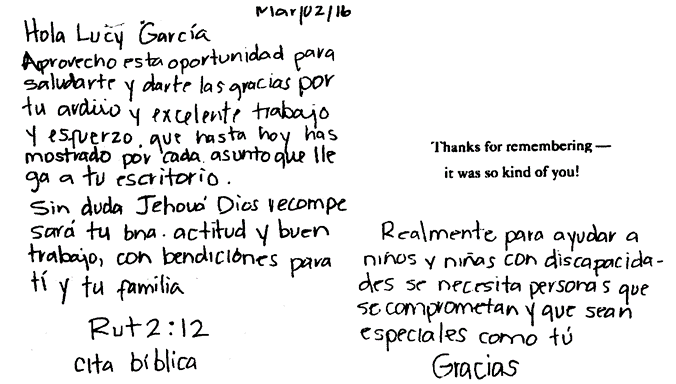 Mar/02/16
Hola Lucy García
Aprovecho esta oportunidad para
saludarte y darte las gracias por
tu arduo y excelente trabajo
y esfuerzo. que hasta hoy has
mostrado por cada asunto que lle
ga a tu escritorio.
Sin duda Jehová Dios recompe
sará tu bna. actitud y buen
trabajo, con bendiciónes para
tí y tu familia
Rut 2:12
cita bíblica
Thanks for remembering—
it was so kind of you!
Realmente para ayudar a
niños y niñas con discapacida-
des se necesita personas que
se comprometan y que sean
especiales como tú
Gracias